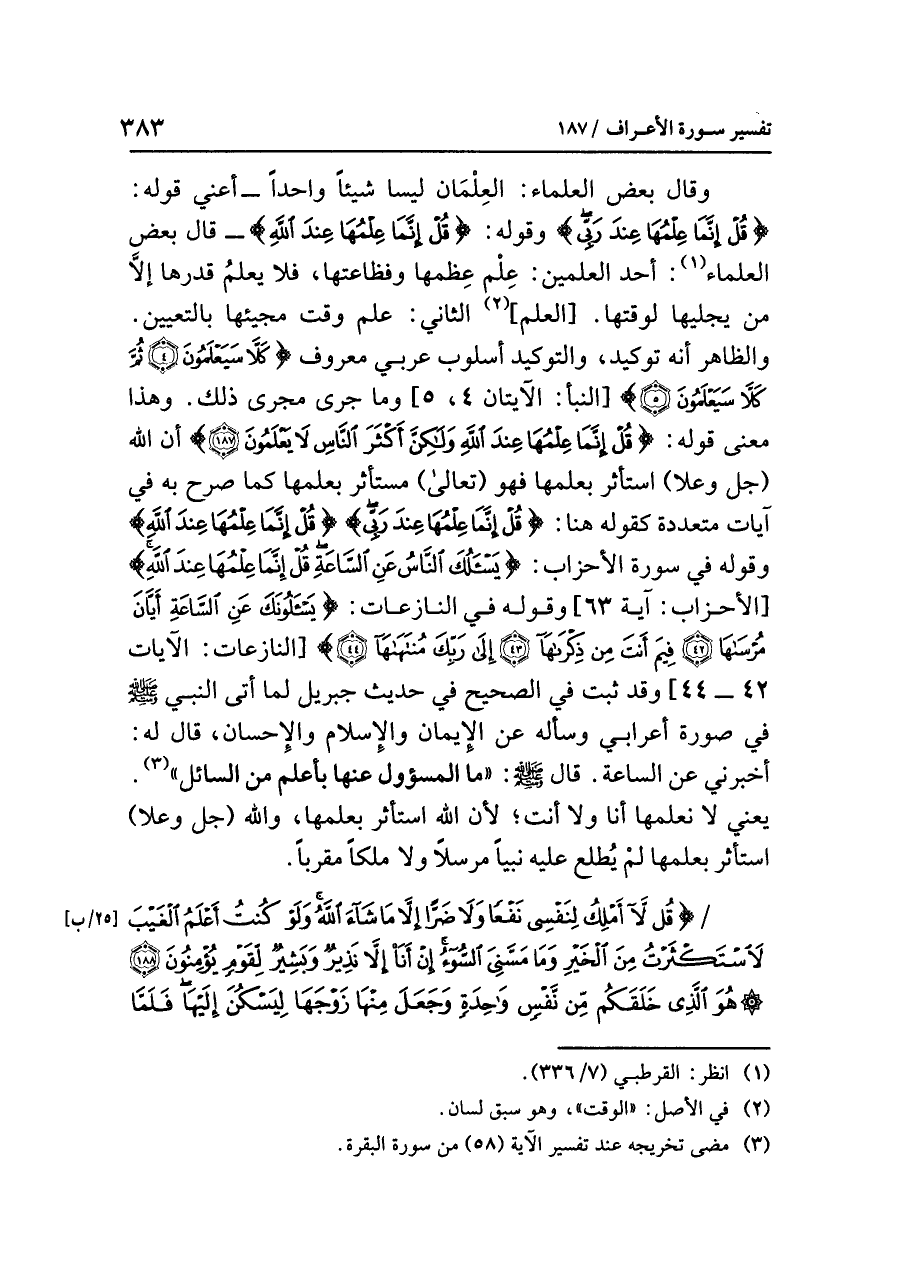 تفسير سورة الأعراف / ١٨٧ ٣٨٣
وقال بعض العلماء: العِلْمَان ليسا شيئاً واحداً ــ أعني قوله:
﴿ قُلْ إِنَّمَا عِلْمُهَا عِندَ رَبِّي ﴾ وقوله: ﴿ قُلْ إِنَّمَا عِلْمُهَا عِندَ ٱللَّهِ ﴾ ــ قال بعض
العلماء(١): أحد العلمين: عِلْم عِظمها وفظاعتها، فلا يعلمُ قدرها إلَّا
من يجليها لوقتها. [العلم](٢) الثاني: علم وقت مجيئها بالتعيين.
والظاهر أنه توكيد، والتوكيد أسلوب عربي معروف ﴿ كَلَّا سَيَعْلَمُونَ ٤ ثُمَّ
كَلَّا سَيَعْلَمُونَ ٥ ﴾ [النبأ: الآيتان ٤، ٥] وما جرى مجرى ذلك. وهذا
معنى قوله: ﴿ قُلْ إِنَّمَا عِلْمُهَا عِندَ ٱللَّهِ وَلَٰكِنَّ أَكْثَرَ ٱلنَّاسِ لَا يَعْلَمُونَ ١٨٧ ﴾ أن الله
(جل وعلا) استأثر بعلمها فهو (تعالىٰ) مستأثر بعلمها كما صرح به في
آيات متعددة كقوله هنا: ﴿ قُلْ إِنَّمَا عِلْمُهَا عِندَ رَبِّي ﴾ ﴿ قُلْ إِنَّمَا عِلْمُهَا عِندَ ٱللَّهِ ﴾
وقوله في سورة الأحزاب: ﴿ يَسْـَٔلُكَ ٱلنَّاسُ عَنِ ٱلسَّاعَةِ قُلْ إِنَّمَا عِلْمُهَا عِندَ ٱللَّهِ ﴾
[الأحزاب: آية ٦٣] وقوله في النازعات: ﴿ يَسْـَٔلُونَكَ عَنِ ٱلسَّاعَةِ أَيَّانَ
مُرْسَىٰهَا ٤٢ فِيمَ أَنتَ مِن ذِكْرَىٰهَآ ٤٣ إِلَىٰ رَبِّكَ مُنتَهَىٰهَآ ٤٤ ﴾ [النازعات: الآيات
٤٢ ــ ٤٤] وقد ثبت في الصحيح في حديث جبريل لما أتى النبي ﷺ
في صورة أعرابي وسأله عن الإِيمان والإِسلام والإِحسان، قال له:
أخبرني عن الساعة. قال ﷺ: «ما المسؤول عنها بأعلم من السائل»(٣).
يعني لا نعلمها أنا ولا أنت؛ لأن الله استأثر بعلمها، والله (جل وعلا)
استأثر بعلمها لمْ يُطلع عليه نبياً مرسلاً ولا ملكاً مقرباً.
/ ﴿ قُل لَّآ أَمْلِكُ لِنَفْسِى نَفْعًا وَلَا ضَرًّا إِلَّا مَا شَآءَ ٱللَّهُ وَلَوْ كُنتُ أَعْلَمُ ٱلْغَيْبَ [٢٥/ب]
لَٱسْتَكْثَرْتُ مِنَ ٱلْخَيْرِ وَمَا مَسَّنِىَ ٱلسُّوٓءُ إِنْ أَنَا۠ إِلَّا نَذِيرٌ وَبَشِيرٌ لِّقَوْمٍ يُؤْمِنُونَ ١٨٨
۞ هُوَ ٱلَّذِى خَلَقَكُم مِّن نَّفْسٍ وَٰحِدَةٍ وَجَعَلَ مِنْهَا زَوْجَهَا لِيَسْكُنَ إِلَيْهَا فَلَمَّا
(١) انظر: القرطبي (٧/ ٣٣٦).
(٢) في الأصل: «الوقت»، وهو سبق لسان.
(٣) مضى تخريجه عند تفسير الآية (٥٨) من سورة البقرة.